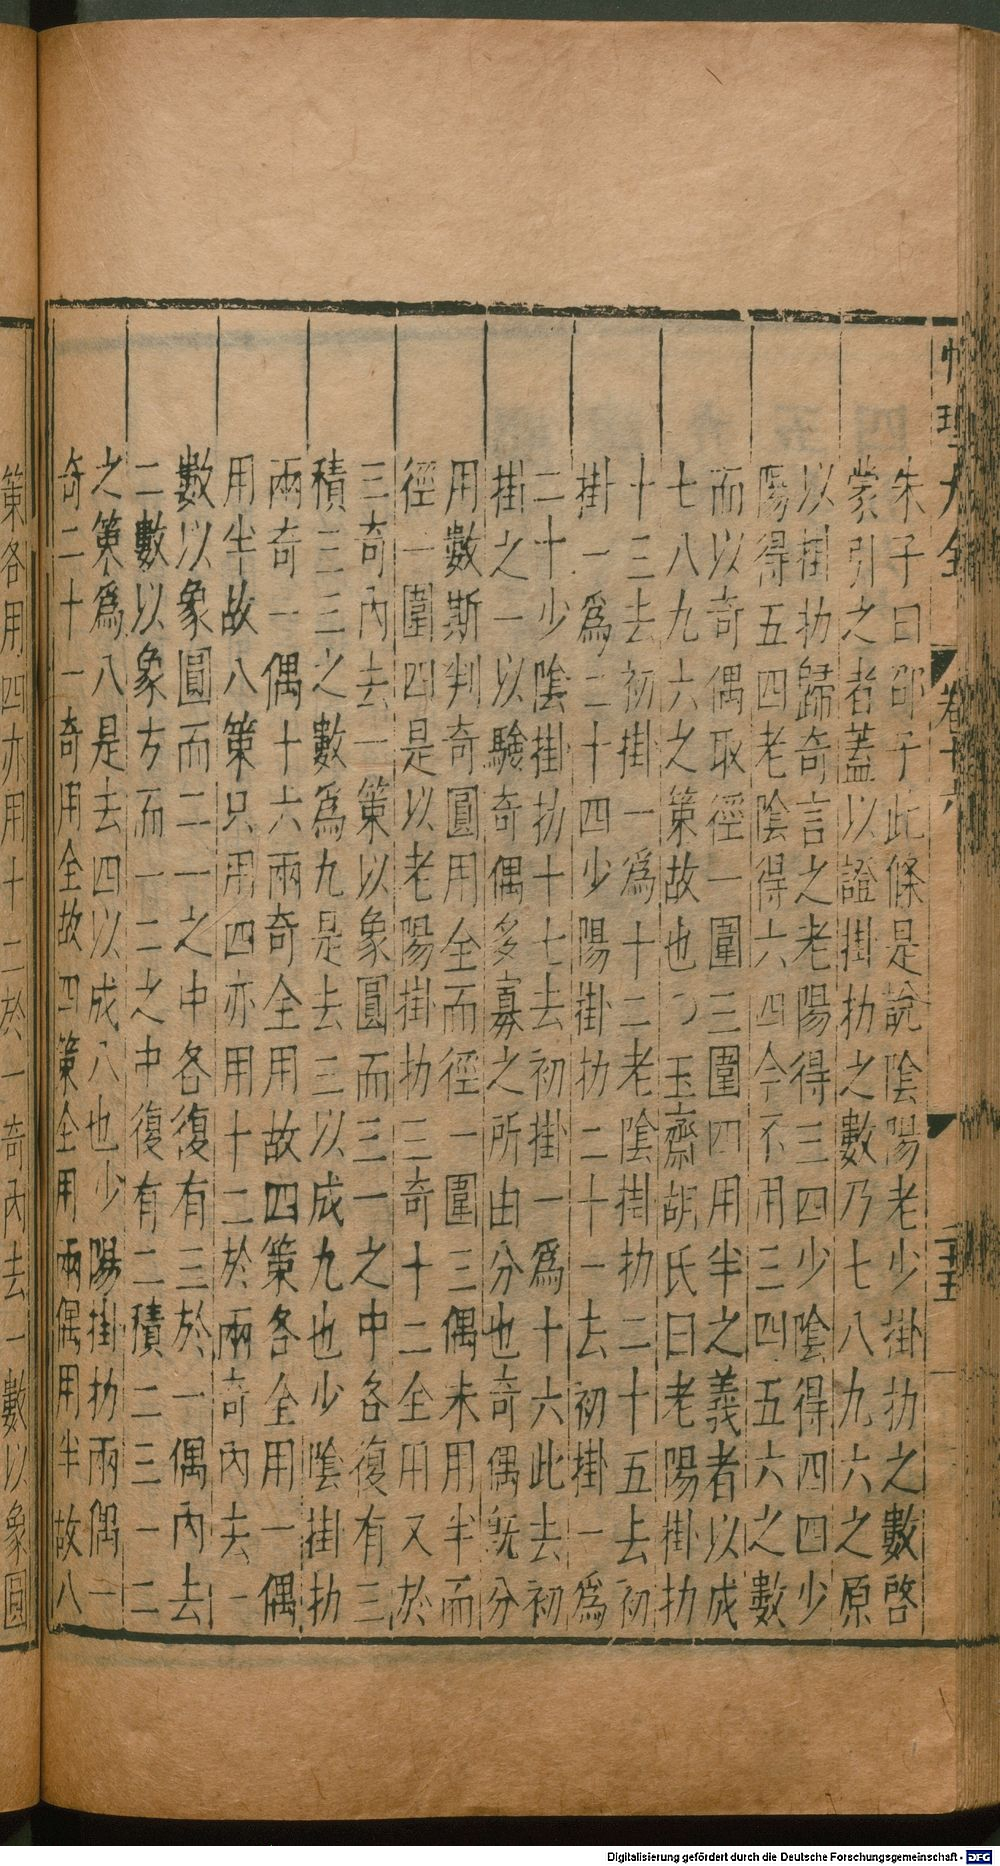 性理大全 卷十六 二十五
朱子曰邵子此條是說陰陽老少掛扐之數啓
蒙引之者蓋以證掛扐之數乃七八九六之原
以掛扐歸奇言之老陽得三四少陰得四四少
陽得五四老陰得六四今不用三四五六之數
而以奇偶取徑一圍三圍四用半之義者以成
七八九六之策故也○玉齋胡氏曰老陽掛扐
十三去初掛一爲十二老陰掛扐二十五去初
掛一爲二十四少陽掛扐二十一去初掛一爲
二十少陰掛扐十七去初掛一爲十六此去初
掛之一以驗奇偶多寡之所由分也奇偶旣分
用數斯判奇圓用全而徑一圍三偶未用半而
徑一圍四是以老陽掛扐三奇十二全用又於
三奇內去一策以象圓而三一之中各復有三
積三三之數爲九是去三以成九也少陰掛扐
兩奇一偶十六兩奇全用故四策各全用一偶
用半故八策只用四亦用十二於兩奇內去一
數以象圓而二一之中各復有三於一偶內去
二數以象方而一二之中復有二積二三一二
之策爲八是去四以成八也少陽掛扐兩偶一
奇二十一奇用全故四策全用兩偶用半故八
策各用四亦用十二於一奇內去一數以象圓
Digitalisierung gefördert durch die Deutsche Forschungsgemeinschaft - DFG